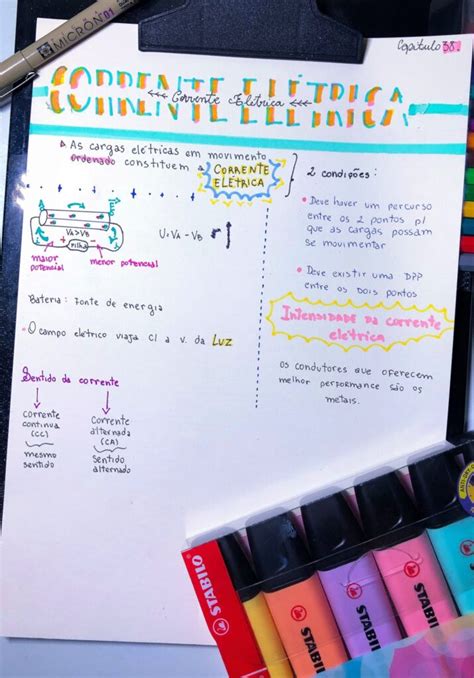 MICRON 01
Capítulo 38
CORRENTE ELÉTRICA
Corrente Elétrica
As cargas elétricas em movimento
ordenado constituem a CORRENTE
ELÉTRICA
VA>VB
+ Pilha -
maior
potencial
menor potencial
U=VA-VB
Bateria: Fonte de energia
O campo elétrico viaja c/ a v. da Luz
Sentido da corrente
Corrente
contínua
(CC)
mesmo
sentido
Corrente
alternada
(CA)
sentido
alternado
2 condições:
Deve haver um percurso
entre os 2 pontos p/
que as cargas possam
se movimentar
Deve existir uma DPP
entre os dois pontos
Intensidade da corrente
elétrica
os condutores que oferecem
melhor performance são os
metais.
STABILO
STABILO
STABIL
STABI
STAB